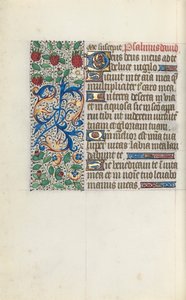 me suscepit. Psalmus david
Deus deus meus ad te
de luce vigilo
Sitiuit in te aia mea
multipliciter t caro mea
In terra deserta in via
et in aquosa sic in sco apa
rui tibi ut viderem uirtute
tuam et gloriam tuam
melior est mia tua
super uitas labia mea lau
dabunt te
Sic benedicam te i uita
mea et in noie tuo leuabo
manus meas